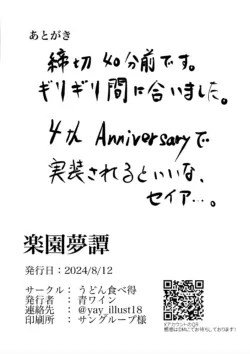 あとがき
締切40分前です。
ギリギリ間に合いました。
4th Anniversaryで
実装されるといいな、
セイア…。
楽園夢譚
発行日：2024/8/12
サークル：うどん食べ得
発行者　：青ワイン
連絡先　：@yay_illust18
印刷所　：サングループ様
Xアカウントのです
感想はDMにてお待ちしております!